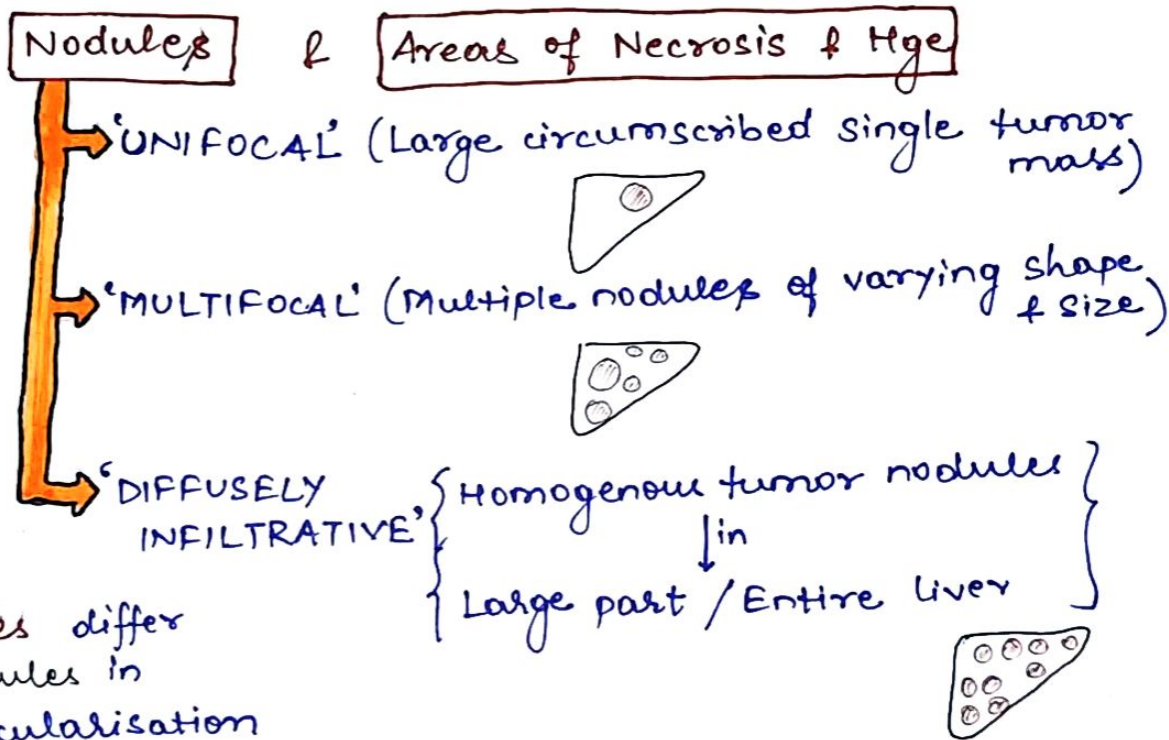 Nodules & Areas of Necrosis & Hge
'UNIFOCAL' (Large circumscribed single tumor
mass)
'MULTIFOCAL' (Multiple nodules of varying shape
& size)
'DIFFUSELY
INFILTRATIVE'
Homogenous tumor nodules
in
Large part / Entire liver
differ
in